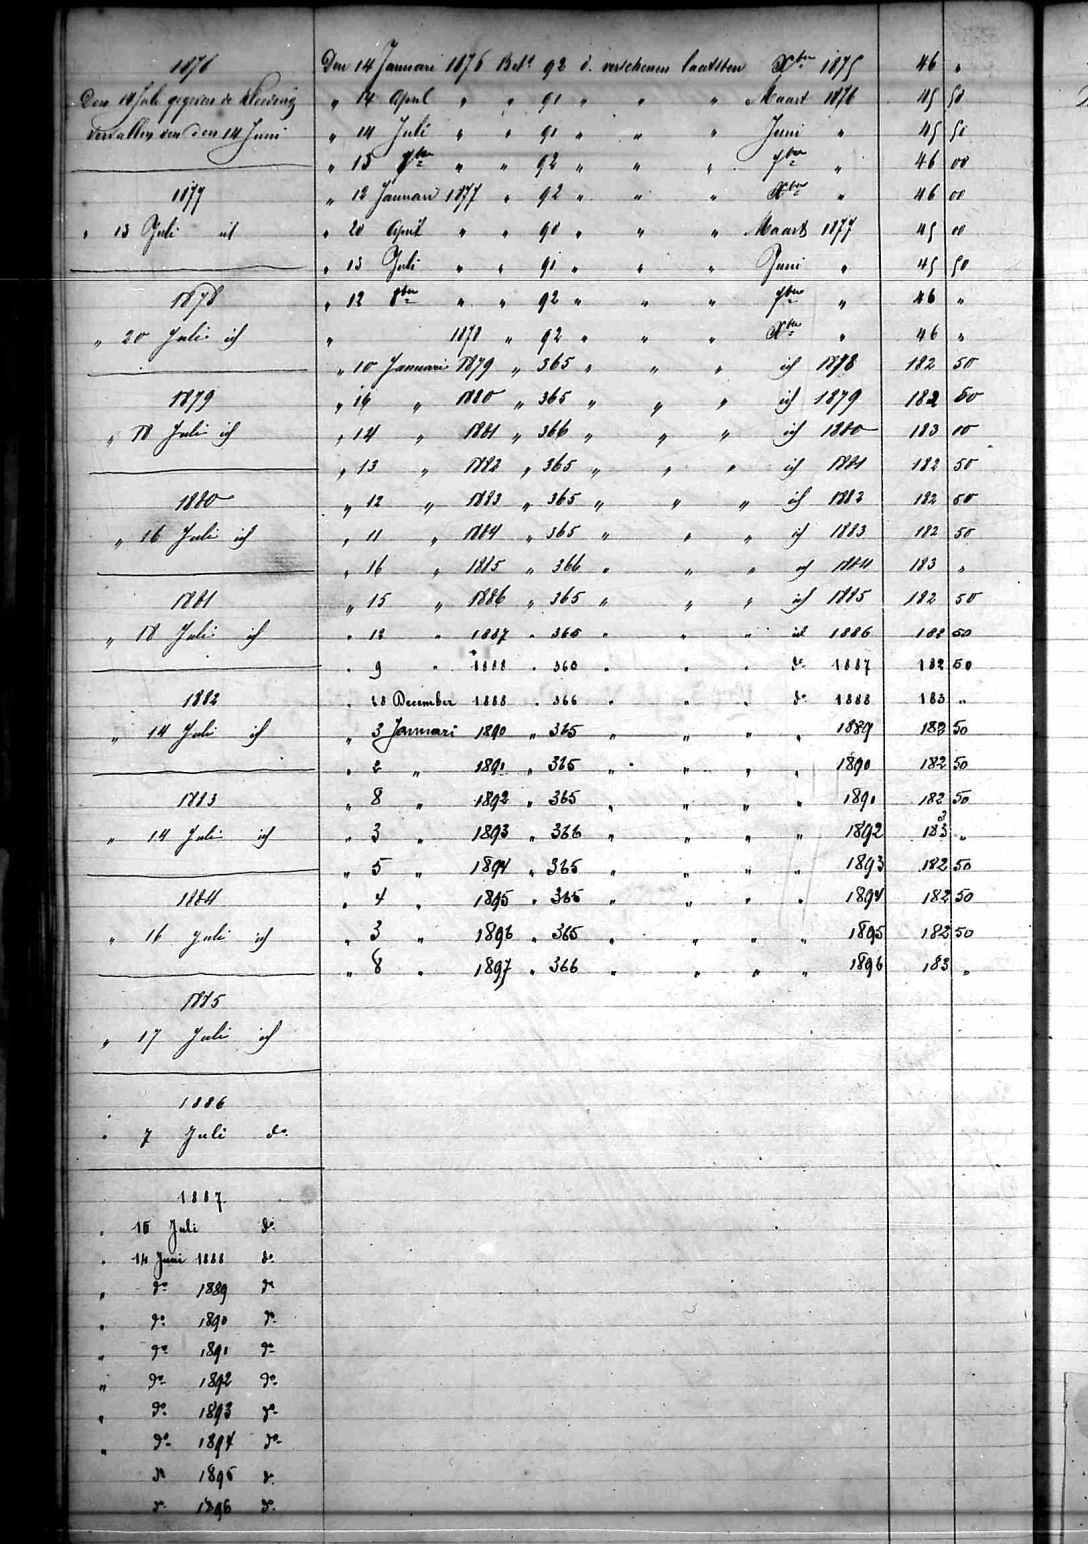 1876
Den 14 Juli gegeven de kleeding
vervallen den 14 Juni
1877
" 13 Juli id
1878
" 20 Juli id
1879
" 18 Juli id
1880
" 16 Juli id
1881
" 18 Juli id
1882
" 14 Juli id
1883
" 14 Juli id
1884
" 16 Juli id
1885
" 17 Juli id
1886
" 7 Juli do
1887
" 15 Juli do
" 14 Juni 1888 do
" do 1889 do
" do 1890 do
" do 1891 do
" do 1892 do
" do 1893 do
" do 1894 do
do 1895 do
do 1896 do
Den 14 Januari 1876 Bet. 92 d. verschenen laatsten Xber 1875 46 "
" 14 April " " 91 " " " Maart 1876 45 50
" 14 Juli " " 91 " " " Juni " 45 50
" 13 8ber " " 92 " " " 7ber " 46 00
" 12 Januari 1877 " 92 " " " Xber " 46 00
" 20 April " " 90 " " " Maart 1877 45 00
" 13 Juli " " 91 " " " Juni " 45 50
" 12 8ber " " 92 " " " 7ber " 46 "
" 1878 " 92 " " " Xber " 46 "
" 10 Januari 1879 " 365 " " " id 1878 182 50
" 16 " 1880 " 365 " " " id 1879 182 50
" 14 " 1881 " 366 " " " id 1880 183 00
" 13 " 1882 " 365 " " " id 1881 182 50
" 12 " 1883 " 365 " " " id 1882 182 50
" 11 " 1884 " 365 " " " id 1883 182 50
" 16 " 1885 " 366 " " " id 1884 183 "
" 15 " 1886 " 365 " " " id 1885 182 50
" 12 " 1887 " 365 " " " id 1886 182 50
" 9 " 1888 " 365 " " " do 1887 182 50
" 28 December 1888 " 366 " " " do 1888 183 "
" 3 Januari 1890 " 365 " " " " 1889 182 50
" 2 " 1891 " 365 " " " " 1890 182 50
" 8 " 1892 " 365 " " " " 1891 182 50
" 3 " 1893 " 366 " " " " 1892 183 "
" 5 " 1894 " 365 " " " " 1893 182 50
" 4 " 1895 " 365 " " " " 1894 182 50
" 3 " 1896 " 365 " " " " 1895 182 50
" 8 " 1897 " 366 " " " " 1896 183 "